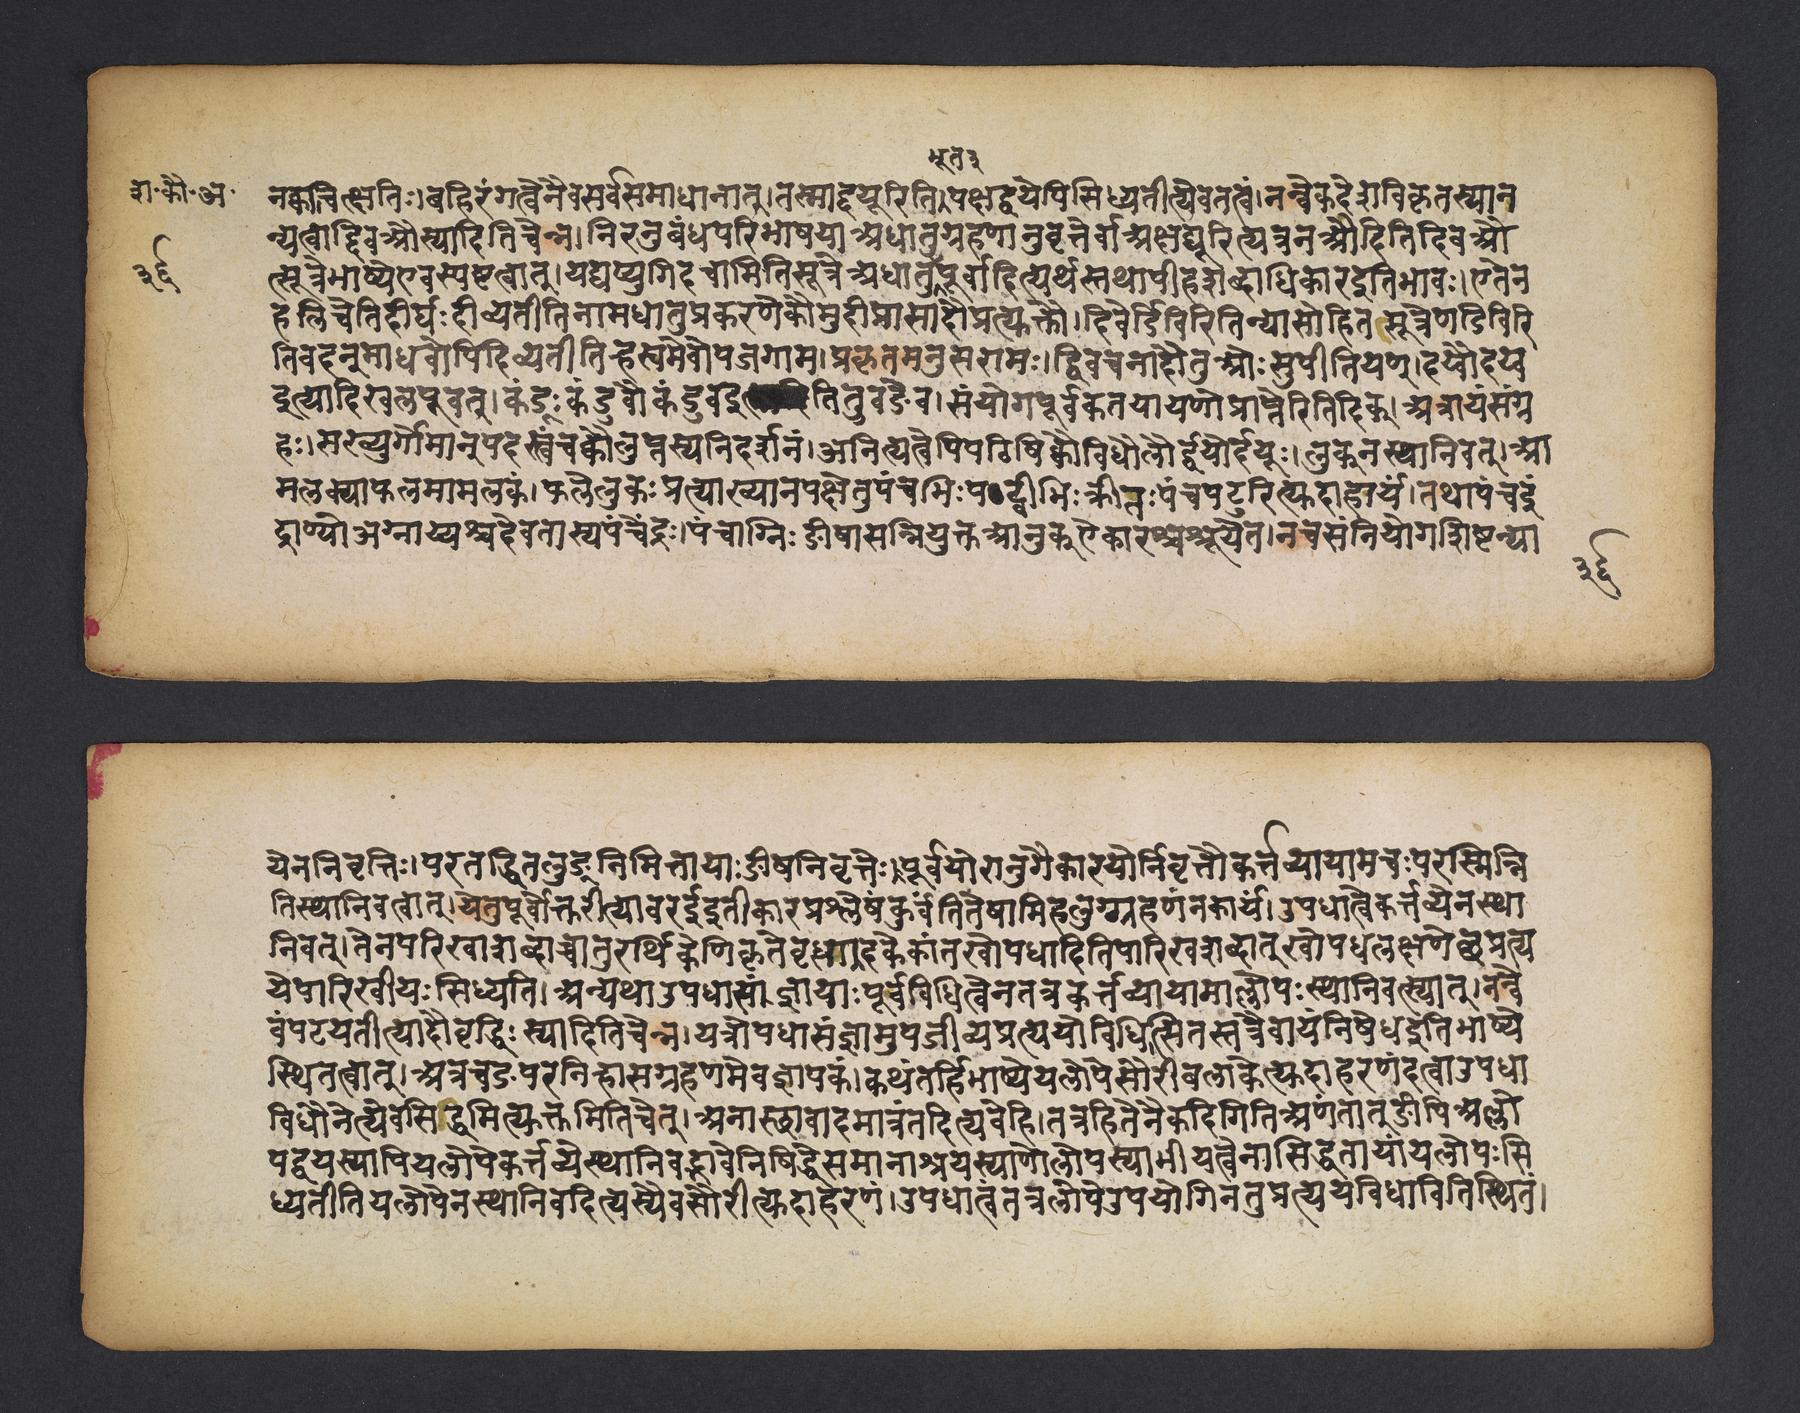 भूतइ
श·कौ·अ· नक्कचित्क्षतिः।बहिरंगत्वेनैवसर्वसमाधानात्।तस्माद्द्यूरिति।पक्षद्वयेपिसिध्यतीत्येवतत्वं।नन्वेकदेशविकृतस्यान
३६ न्यत्वाद्दिवऔत्स्यादितिचेन्न।निरनुबंधपरिभाषया अधातुग्रहणानुवृत्तेर्वा अक्षद्यूरित्यत्रनऔदितिदिवऔ
त्सूत्रेभाष्येएवस्पष्टत्वात्।यद्यप्युगिदचामितिसूत्रे अधातुपूर्वादित्यर्थस्तथापीहशब्दाधिकारइतिभावः।एतेन
हलिचेतिदीर्घःदीव्यतीतिनामधातुप्रकरणेकौमुदीप्रासादौप्रत्युक्तौ।दिवेर्डिविरितिन्यासोहितसूत्रेणडिविरि
तिवदन्माधवोपिदिव्यतीतिह्रस्वमेवोपजगाम।प्रकृतमनुसरामः।द्विवचनादौतुओःसुपीतियण्।दय्वौदय्व
इत्यादिखलपूवत्।कंडूःकंडुवौकंडुवइ तितुवङेव।संयोगपूर्वकतयायणोप्राप्तेरितिदिक्।अत्रायंसंग्र
हः।सख्युर्गोमानुपदेस्वंचक्कौलुप्तस्यनिदर्शनं।अनित्यत्वेपिपरिषिक्कौविधौलौर्द्वयोर्दयूः।लुक्नस्थानिवत्।आ
मलक्याफलमामलकं।फलेलुकःप्रत्याख्यानपक्षेतुपंचभिःपट्वीभिःक्रीतःपंचपटुरित्युदाहार्यं।तथापंचइं
द्राण्योअग्नाय्यश्चदेवतास्यपंचेंद्रः।पंचाग्निः ङीषासन्नियुक्तआनुक्ऐकारश्चश्रूयेत।नचसंनियोगशिष्टन्या
३६
येननिवृत्तिः।परतद्धितलुङ्निमित्तायाःङीषनिवृत्तेः।पूर्वयोरानुगैकारयोर्निवृत्तौकर्त्तव्यायामचःपरस्मिन्नि
तिस्थानिवत्वात्।येतुपूर्वोक्तरीत्यावरेईइतीकारप्रश्लेषंकुर्वंतितेषामिहलुग्ग्रहणंनकार्यं।उपधात्वेकर्त्तव्येनस्था
निवत्।तेनपरिखाशब्दाच्चातुरर्थिकेणिकृतेवृध्या।हकेकांतखोपधादितिपारिखशब्दात्खोपधलक्षणेछप्रत्य
येपारिखीयःसिध्यति।अन्यथाउपधासंज्ञायाःपूर्वविधित्वेनतत्रकर्त्तव्यायामाल्लोपःस्थानिवत्स्यात्।नन्वे
वंपटयतीत्यादौवृद्धिः स्यादितिचेन्न।यत्रोपधासंज्ञामुपजीव्यप्रत्ययोविधित्सितस्तत्रैवायंनिषेधइतिभाष्ये
स्थितत्वात्।अत्रचङ्परनिर्ह्रासग्रहणमेवज्ञापकं।कथंतर्हिभाष्येयलोपेसौरीबलाकेत्युदाहरणंदत्वाउपधा
विधौनेत्येवसिद्धमित्युक्तमितिचेत्।अनास्छावादमात्रंतदित्यवेहि।तत्रहितेनैकदिगितिअणंतात्ङीपिअल्लो
पद्वयस्यापियलोपेकर्त्तव्येस्थानिवद्भावेनिषिद्धेसमानाश्रयस्याणोलोपस्याभीयत्वेनासिद्धतायांयलोपःसि
ध्यतीतियलोपेनस्थानिवदित्यस्यैवसौरीत्युदाहरणं।उपधात्वंतत्रलोपेउपयोगिनतुप्रत्ययंविधावितिस्थितं।